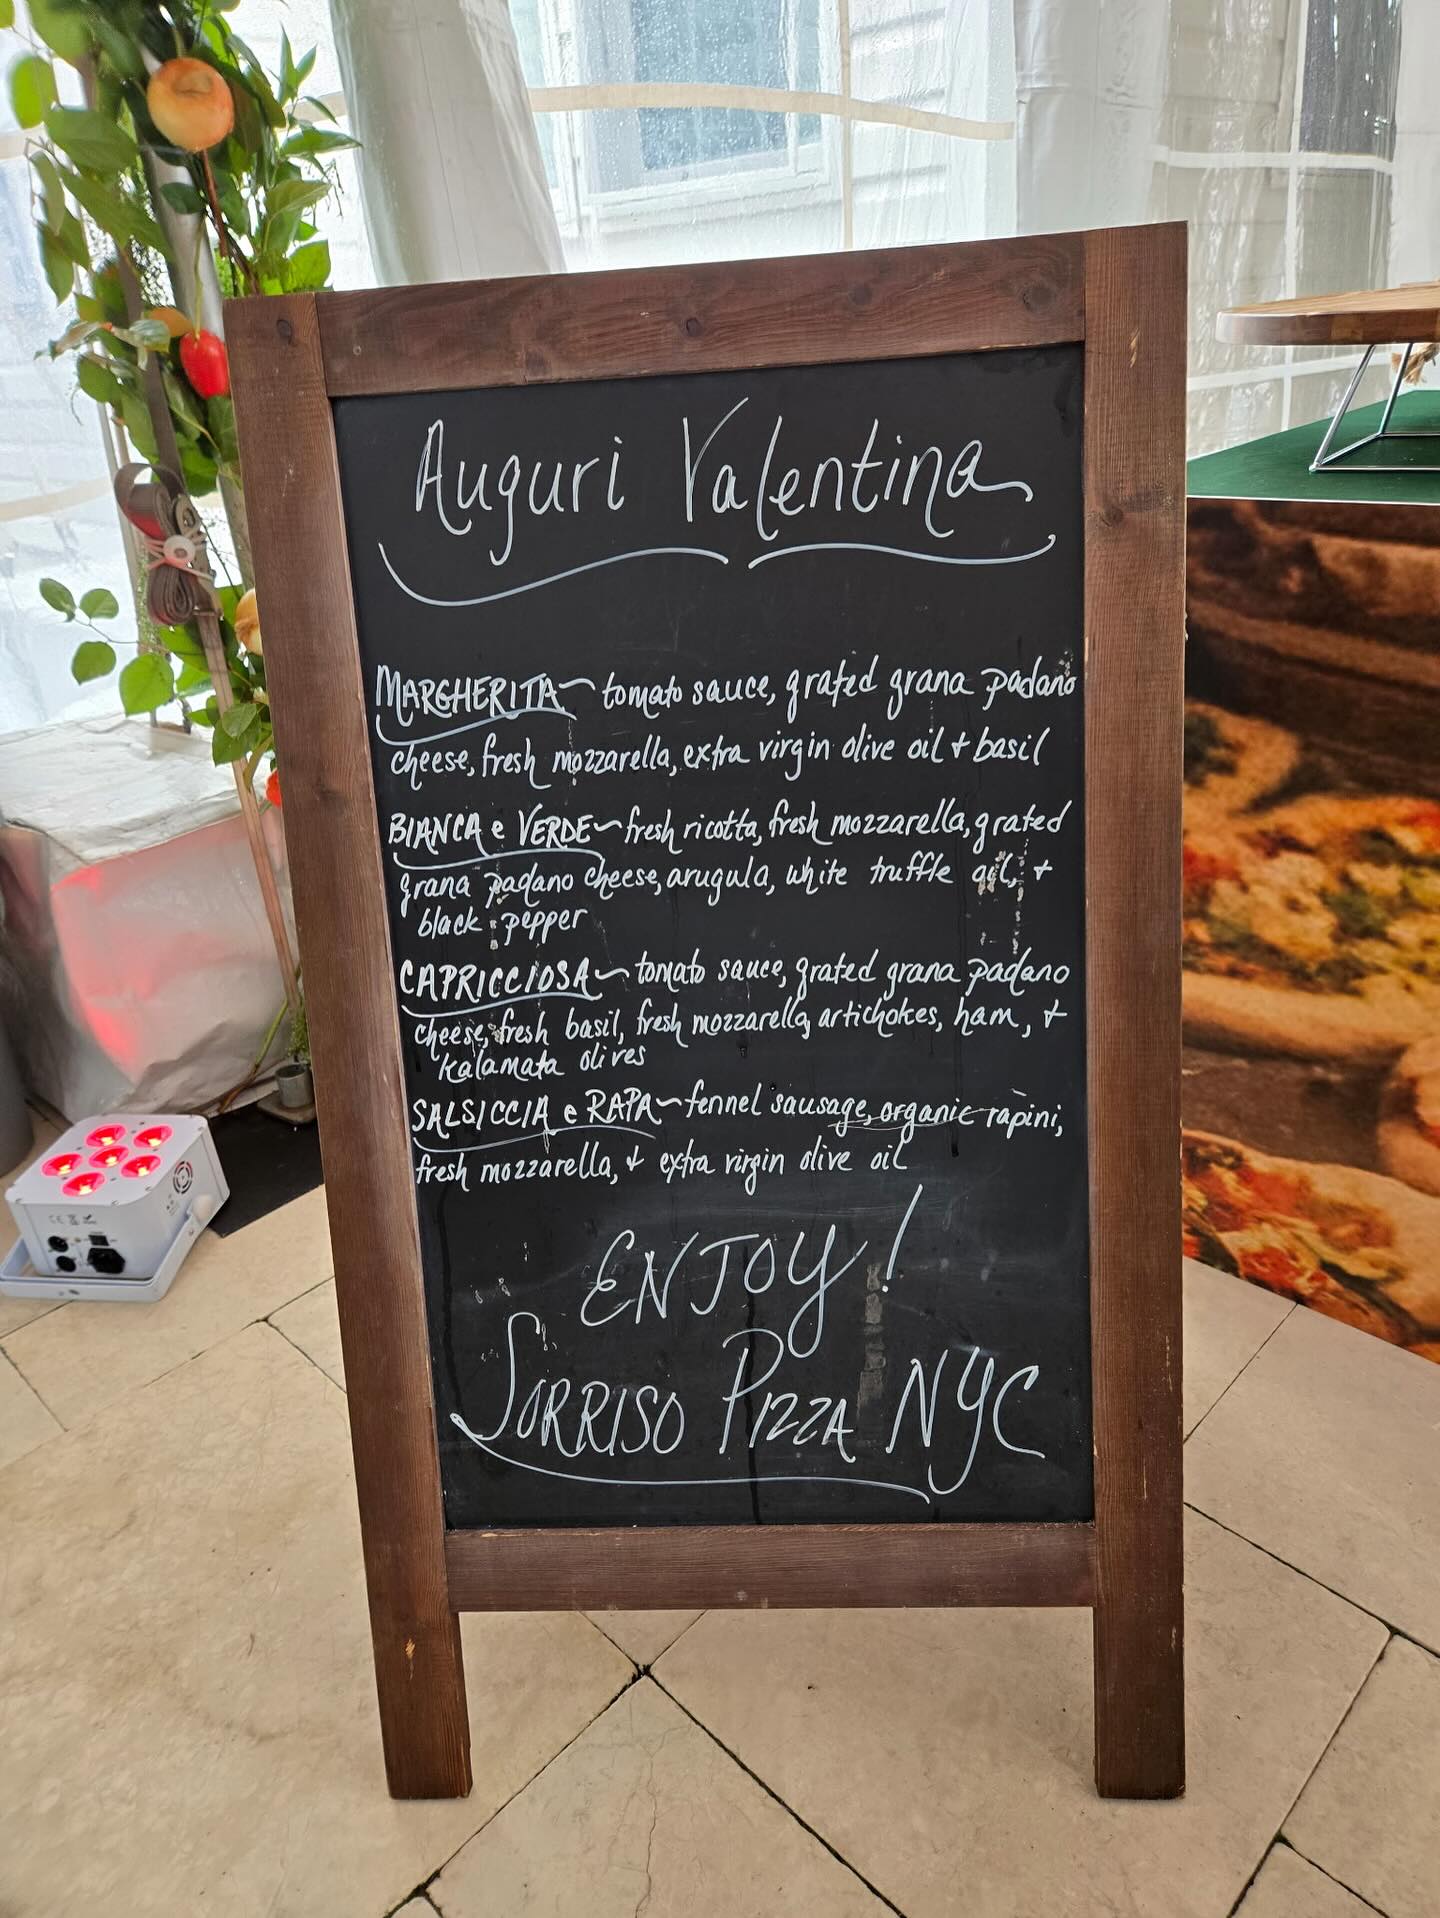 Auguri Valentina
MARGHERITA~ tomato sauce, grated grana padano
cheese, fresh mozzarella, extra virgin olive oil + basil
BIANCA e VERDE~ fresh ricotta, fresh mozzarella, grated
grana padano cheese, arugula, white truffle oil, +
black pepper
CAPRICCIOSA~ tomato sauce, grated grana padano
cheese, fresh basil, fresh mozzarella, artichokes, ham, +
Kalamata olives
SALSICCIA e RAPA~ fennel sausage, organic rapini,
fresh mozzarella, + extra virgin olive oil
ENJOY!
SORRISO PIZZA NYC